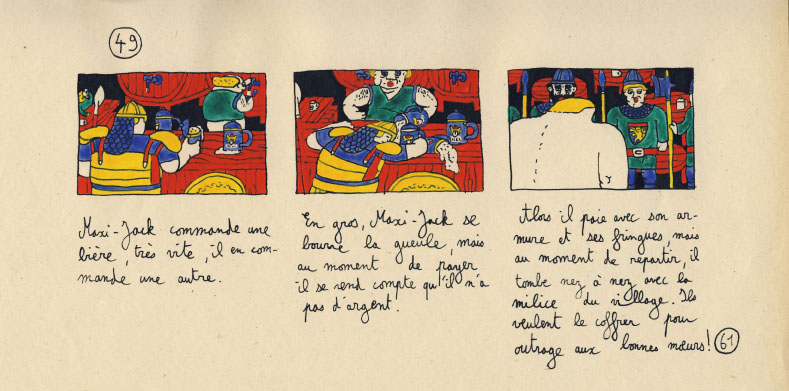 49
Maxi-Jack commande une
bière, très vite, il en com-
mande une autre.
En gros, Maxi-Jack se
bourre la gueule, mais
au moment de payer
il se rend compte qu'il n'a
pas d'argent.
Alors il paie avec son ar-
mure et ses fringues, mais
au moment de repartir, il
tombe nez à nez avec la
milice du village. Ils
veulent le coffrer pour
outrage aux bonnes mœurs! 61